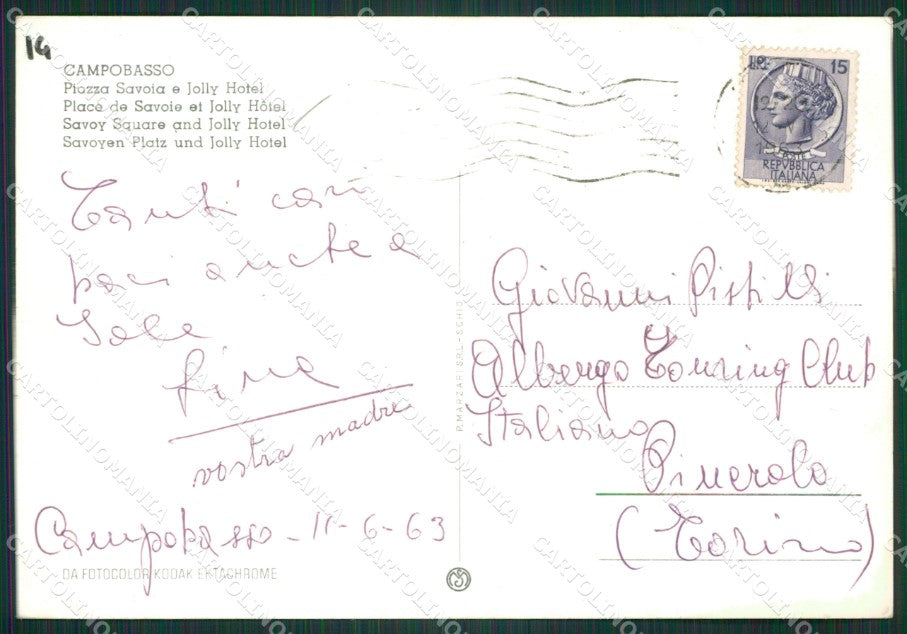 14
CAMPOBASSO
Piazza Savoia e Jolly Hotel
Place de Savoie et Jolly Hôtel
Savoy Square and Jolly Hotel
Savoyen Platz und Jolly Hotel
L. 15
REPVBBLICA
ITALIANA
Tanti cari
baci anche a
Iole
vostra madre
Campobasso - 11-6-63
DA FOTOCOLOR KODAK EKTACHROME
P. MARZARI S.R.L. - SCHIO
Giovanni Pistilli
Albergo Touring Club
Italiano
Pinerolo
(Torino)
CARTOLINOMANIA